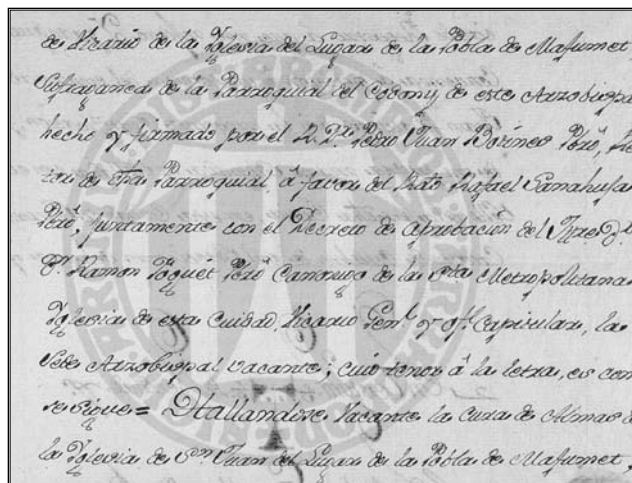 de Vicario de la Yglesia del Lugar de la Pobla de Mafumet,
Sufraganea de la Parroquial del Codony de este Arzobispa
hecho y firmado por el R. Dr. Pedro Juan Borines Pbro, Re
tor de dha Parroquial, à favor del Rdo Rafael Sanahuja
Pbro, juntamente con el Decreto de aprobacion del Iltre Dr.
Dn. Ramon Foguét Pbro Canonigo de la Sta Metropolitana
Yglesia de esta Ciudad, Vicario Genl. y ofl. Capitular, la
Sede Arzobispal vacante; cuio tenor à la letra, es com
se sigue = Hallandose Vacante la Cura de Almas de
la Yglesia de Sn. Juan del Lugar de la Pobla de Mafumet,